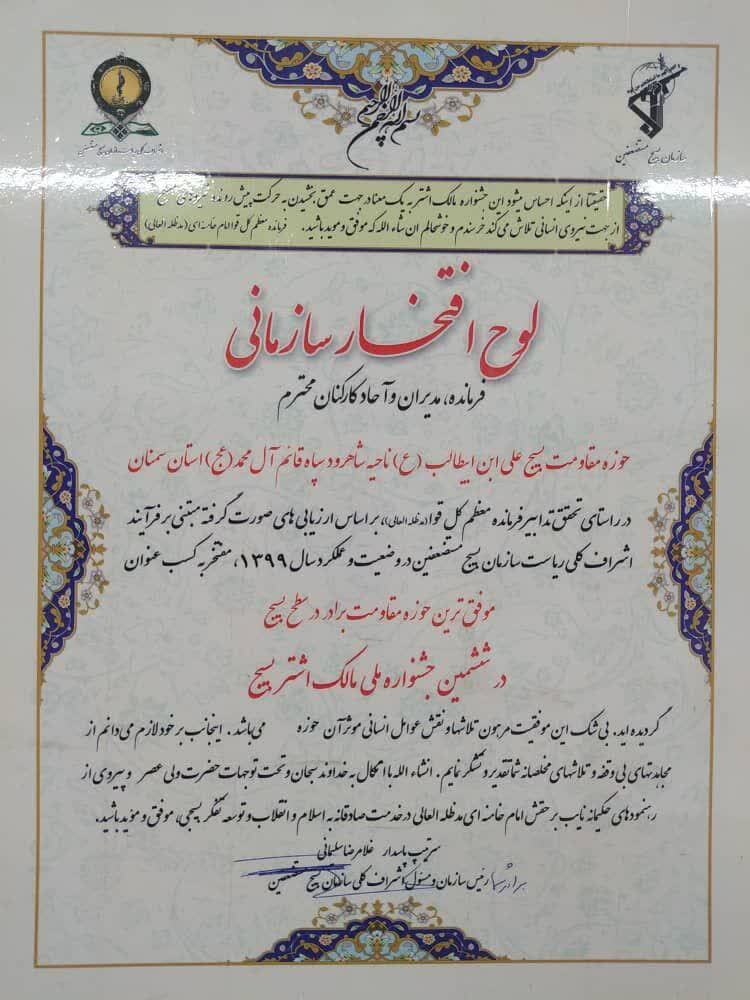 بسم الله الرحمن الرحیم
سازمان بسیج مستضعفین
حقیقتا از اینکه احساس میشود این جشنواره مالک اشتر به یک معنا در جهت عمق بخشیدن به حرکت پیش رونده
از جهت نیروی انسانی تلاش می کند خرسندم و خوشحالم ان شاء الله که موفق و موید باشید. فرمانده معظم کل قوا امام خامنه ای (مدظله العالی)
لوح افتخار سازمانی
فرمانده، مدیران و آحاد کارکنان محترم
حوزه مقاومت بسیج علی ابن ابیطالب (ع) ناحیه شاهرود سپاه قائم آل محمد (عج) استان سمنان
در راستای تحقق تدابیر فرمانده معظم کل قوا (مدظله العالی)، بر اساس ارزیابی های صورت گرفته مبتنی بر فرآیند
اشراف کلی ریاست سازمان بسیج مستضعفین در وضعیت و عملکرد سال ۱۳۹۹، مفتخر به کسب عنوان
موفق ترین حوزه مقاومت برادر در سطح بسیج
در ششمین جشنواره ملی مالک اشتر بسیج
گردیده اید. بی شک این موفقیت مرهون تلاشها و نقش عوامل انسانی موثر آن حوزه می باشد. اینجانب بر خود لازم می دانم از
مجاهدتهای بی وقفه و تلاشهای مخلصانه شما تقدیر و تشکر نمایم. انشاء الله با اتکال به خداوند سبحان و تحت توجهات حضرت ولی عصر و پیروی از
رهنمودهای حکیمانه نایب بر حقش امام خامنه ای مدظله العالی در خدمت صادقانه به اسلام و انقلاب و توسعه تفکر بسیجی، موفق و موید باشید.
سرتیپ پاسدار غلامرضا سلیمانی
رئیس سازمان و مسئول اشراف کلی سازمان بسیج مستضعفین